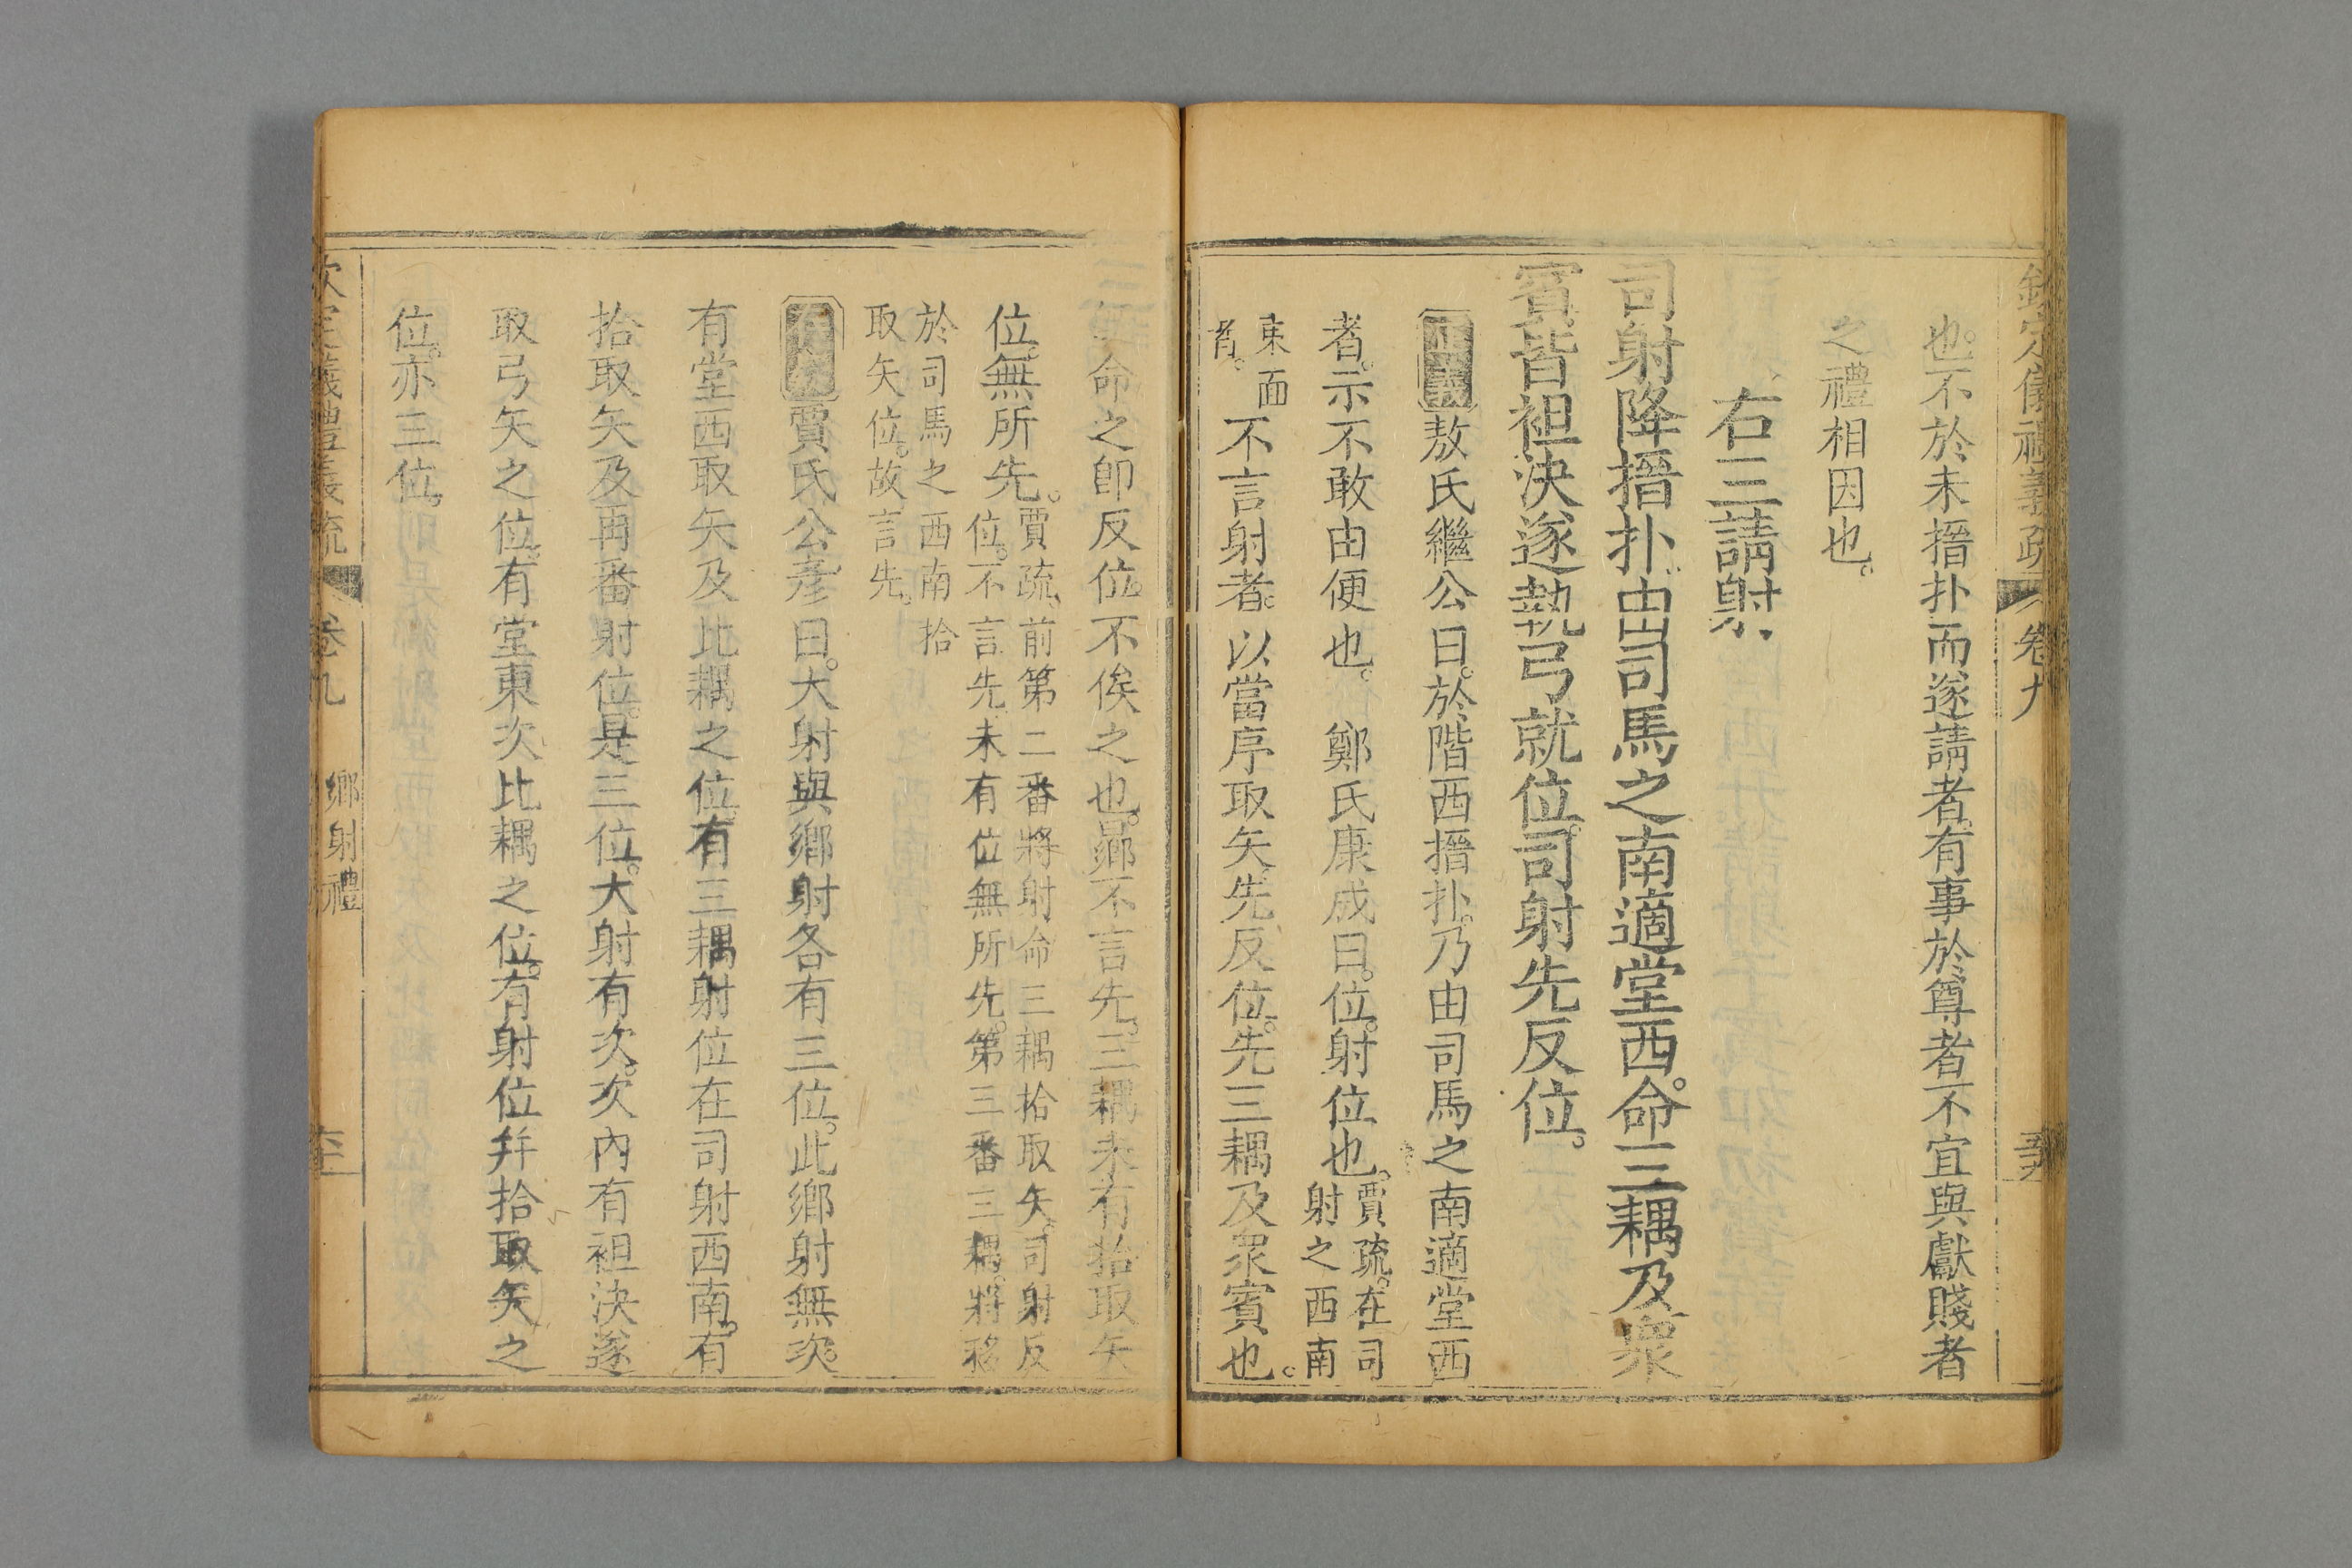 欽定儀禮義疏 卷九
也。不於未搢扑而遂請者。有事於尊者不宜與獻賤者
之禮相因也。
右三請射
司射降搢扑由司馬之南適堂西。命三耦及眾
賓。皆袒決遂執弓就位。司射先反位。
敖氏繼公曰。於階西搢扑。乃由司馬之南適堂西
者。示不敢由便也。 鄭氏康成曰。位。射位也。賈疏。在司
射之西南
東面
者。不言射者。以當序取矢。先反位。先三耦及眾賓也。
命之即反位。不俟之也。曏不言先。三耦未有拾取矢
位。無所先。賈疏。前第二番將射命三耦拾取矢。司射反
位。不言先。未有位無所先。第三番三耦。將移
於司馬之西南拾
取矢位。故言先。
賈氏公彥曰。大射與鄉射各有三位。此鄉射無次。
有堂西取矢及比耦之位。有三耦射位在司射西南。有
拾取矢及再番射位。是三位。大射有次。次內有袒決遂
取弓矢之位。有堂東次比耦之位。有射位幷拾取矢之
位。亦三位。
欽定儀禮義疏 卷九 鄉射禮